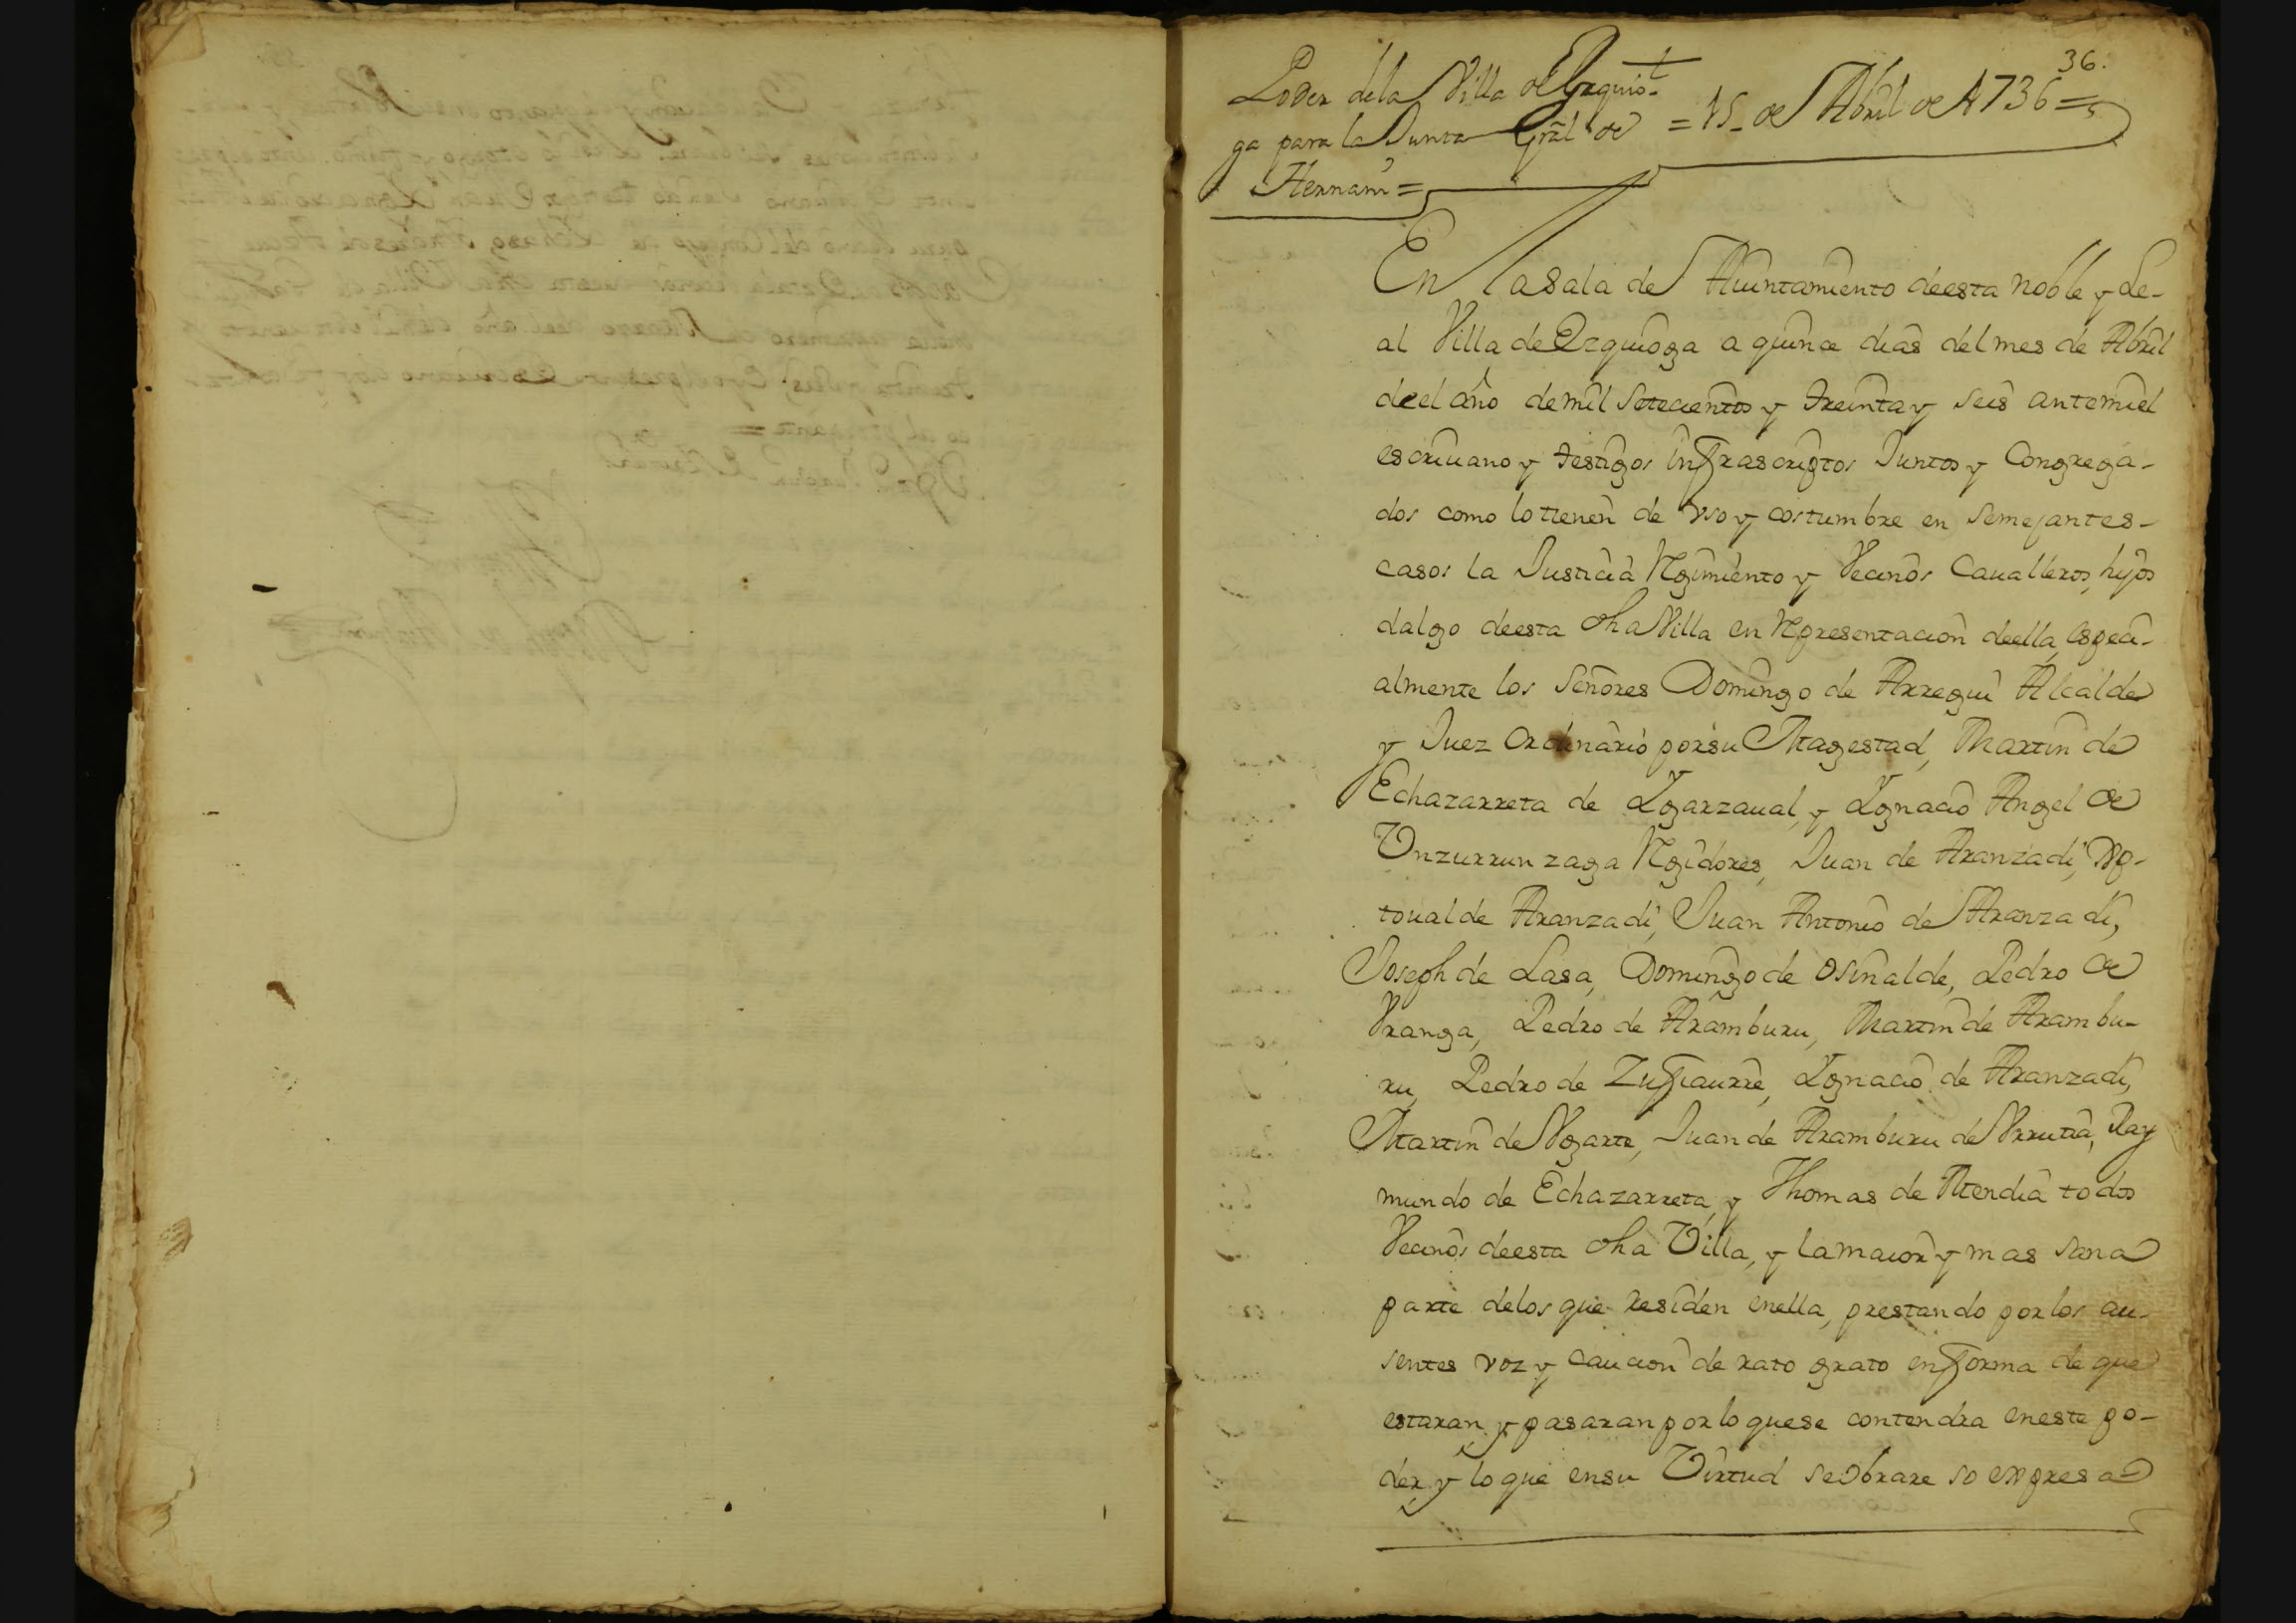 36.
Poder dela Villa de Ezquio-
ga para la Junta Gràl de
Hernani =
= 15 de Abril de 1736 =
En la sala de Aiuntamiento deesta noble y Le-
al Villa de Ezquioga a quince dias del mes de Abril
deel año demil setecientos y treinta y seis antemi el
escriuano y testigos infrascriptos Juntos y Congrega-
dos como lo tienen de vso y costumbre en semejantes-
casos la Justicia Regimiento y Vecinos Caualleros, hijos
dalgo deesta dha Villa en Representacion deella, especi-
almente los señores Domingo de Arregui Alcalde
y Juez ordinario por su Magestad, Martin de
Echazarreta de Ygarzaual, y Ygnacio Angel de
Vnzurrunzaga Regidores, Juan de Aranzadi,
toual de Aranzadi, Juan Antonio de Aranzadi,
Joseph de Lasa, Domingo de Osinalde, Pedro de
Vranga, Pedro de Aramburu, Martin de Arambu-
ru, Pedro de Zufiaurre, Ygnacio de Aranzadi,
Martin de Vgarte, Juan de Aramburu de Vrrutia, Ray
mundo de Echazarreta, y Thomas de Mendia todos
Vecinos deesta dha Villa, y la maior y mas sana
parte delos que residen enella, prestando por los au-
sentes voz y caucion de rato grato en forma de que
estaran y pasaran por lo que se contendra eneste po-
der, y lo que ensu Virtud se obrare so expresa